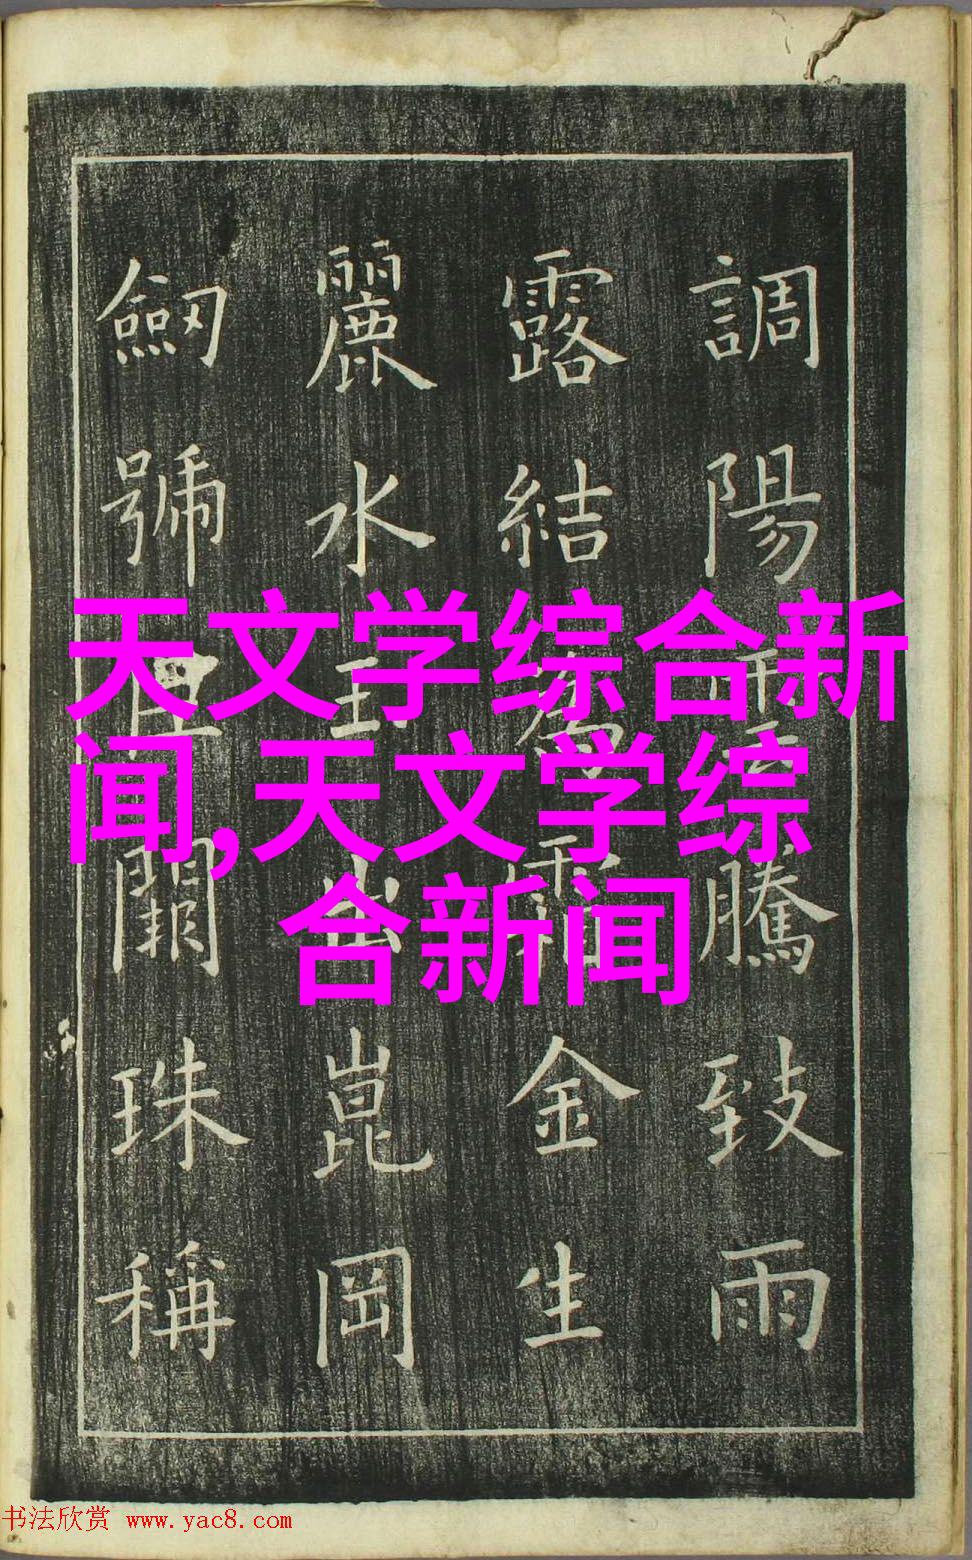 調陽雲騰致雨
露結為霜金生
麗水玉出崑岡
劒號巨闕珠稱
天文学综合新
闻,天文学综
合新闻
书法欣赏 www.yac8.com